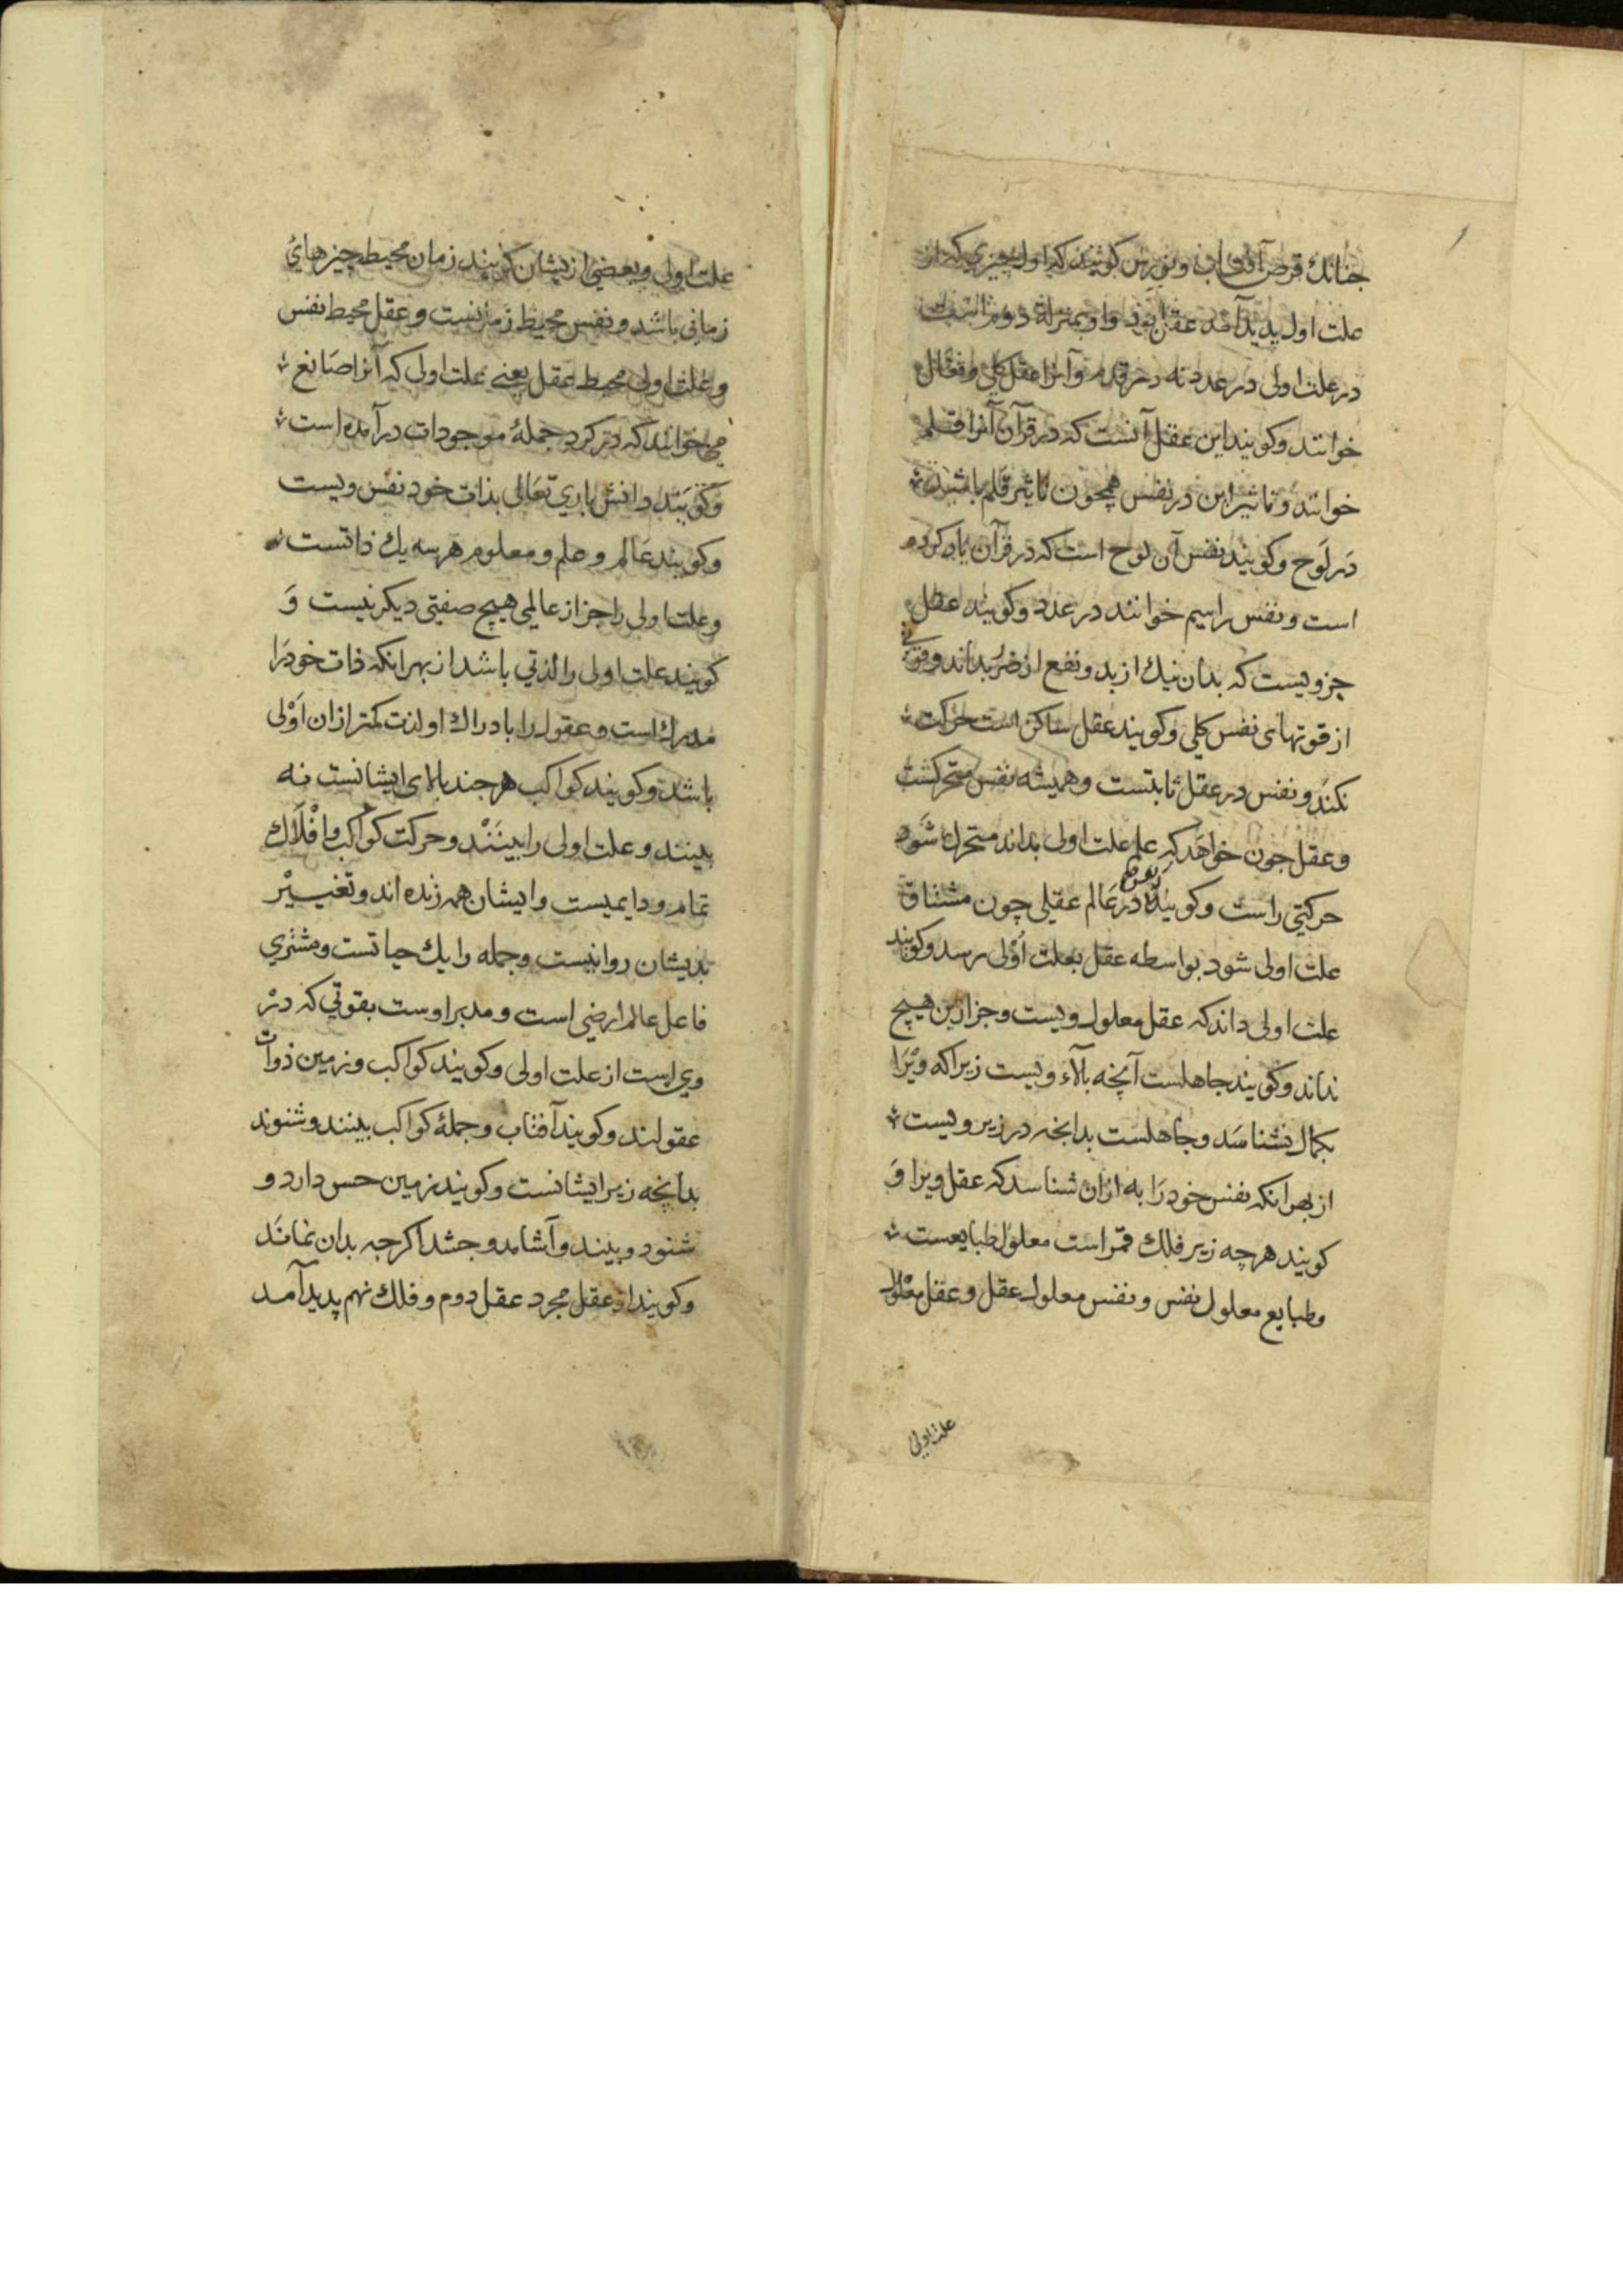 جنانك قرص آفتاب و نورش كويند كه اول چيزي كه از
علت اول پديد آمد عقل بود و او بمنزلهٔ دوم است
در علت اولى در عدد نه در قدم و آنرا عقل كلي و فعّال
خوانند و كويند اين عقل آنست كه در قرآن آنرا قلم
خوانند و تاثير اين در نفس همچون تاثير قلم باشد
در لَوح و كويند نفس آن لوح است كه در قرآن ياد كرده
است و نفس را سيم خوانند در عدد و كويند عقل
جزويست كه بدان نيك از بد و نفع از ضرّ بداند و قوتي
از قوتهاى نفس كلي و كويند عقل ساكن است حركت
نكند و نفس در عقل ثابتست و هميشه نفس متحركست
و عقل جون خواهد كه علم علت اولى بداند متحرك شود
حركتي راست و كويند در عالم عقلي چون مشتاق
علت اولى شود بواسطه عقل بعلت اُوْلى رسد و كويند
علت اولى داند كه عقل معلول ويست و جز ازين هيچ
نداند و كويند جاهلست آنچه بالاء ويست زيرا كه ويْرَا
بكمال نشناسد و جاهلست بدانجه در زير ويست
از بهر انكه نفس خود رَا به ازان شناسد كه عقل ويرا وَ
كويند هر چه زير فلك قمر است معلول طبايعست
و طبايع معلول نفس و نفس معلول عقل و عقل معلول
علت اولى
علت اولى و بعضي ازيشان كويند زمان محيط چيزهايُ
زماني باشد و نفس محيط زمانست و عقل محيط نفس
و علت اولى محيط عقل يعنے علت اولى كه آنرا صَانع
مي خوانند كه در كرد جملهٔ موجودات درآمده است
و كويند دانش باري تعَالى بذات خود نفس ويست
و كويند عَالم و علم و معلوم هر سه يك ذاتست
و علت اولى را جز از عالمي هيچ صفتي ديكر نيست وَ
كويند علت اولى را لذتي باشد از بهر انكه ذات خود رَا
مدرك است و عقول را بادراك او لذت كمتر ازان اَوْلى
باشد و كويند كواكب هر جند بالاى ايشانست نه
بينند و علت اولى را بينَنْد و حركت كواكب و افْلَاك
تمام و دايميست و ايشان همه زنده اند و تغيـيْر
بديشان روا نيست و جمله را يك حياتست و مشتري
فاعل عالم ارضي است و مدبر اوست بقوتي كه درْ
وي است از علت اولى و كويند كواكب و زمين ذوات
عقولند و كويند آفتاب و جملهٔ كواكب بينند و شنوند
بدانچه زير ايشانست و كويند زمين حس دارد و
شنود و بيند و آشامد و جشد اكرجه بدان نماند
و كويند از عقل مجرد عقل دوم و فلك نهم پديد آمد